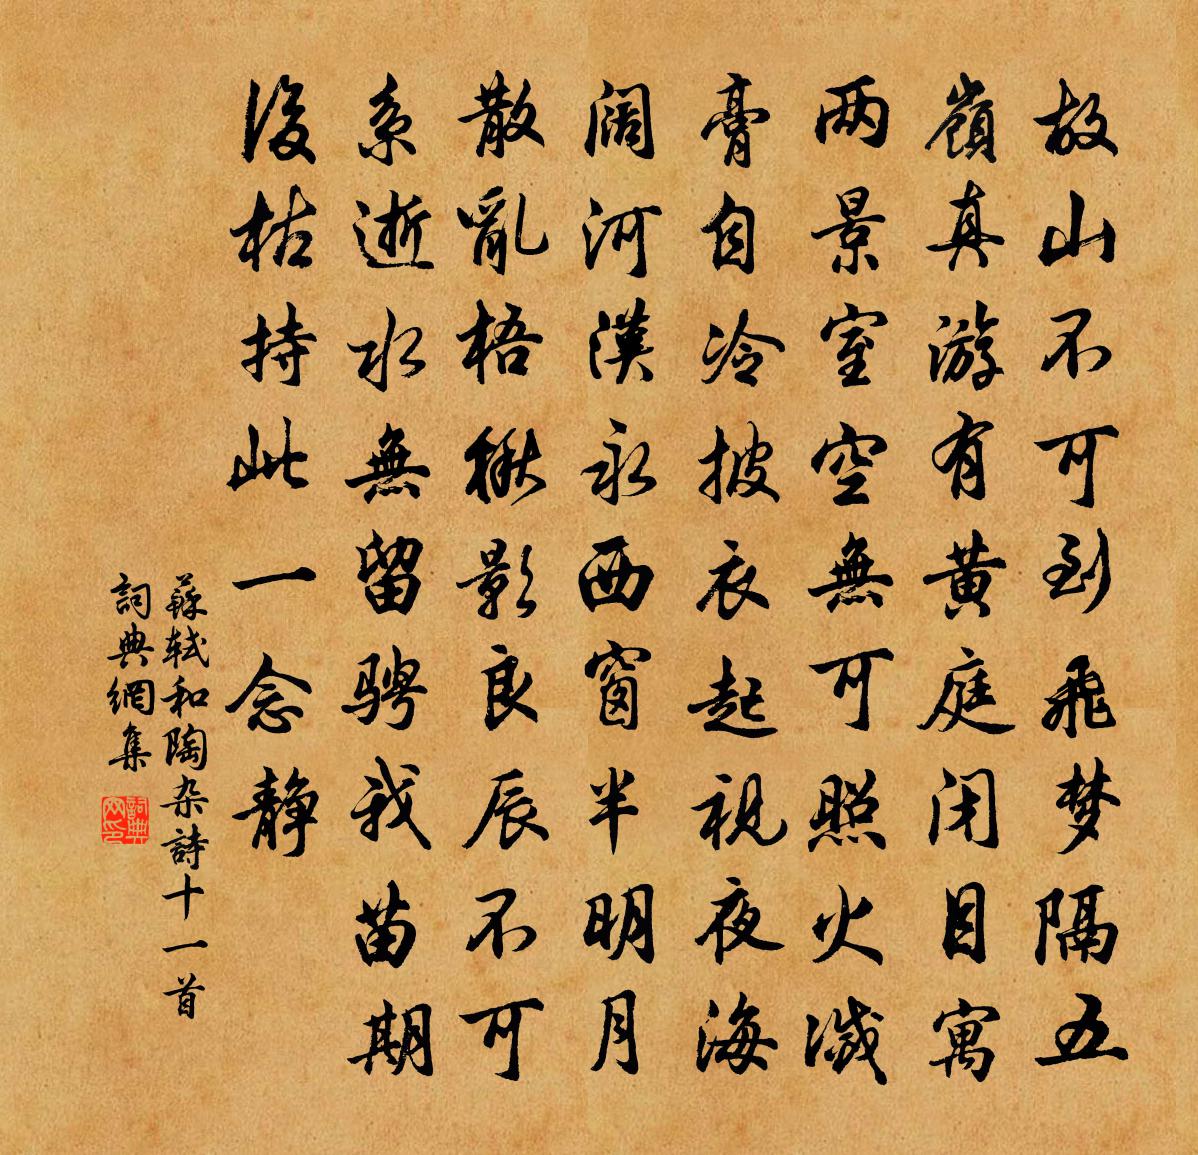 故山不可到飛梦隔五
嶺真游有黄庭闭目寓
两景室空無可照火滅
膏自冷披衣起視夜海
阔河漢永西窗半明月
散亂梧楸影良辰不可
系逝水無留骋我苗期
後枯持此一念静
蘇軾和陶杂詩十一首
詞典網集
詞典网印